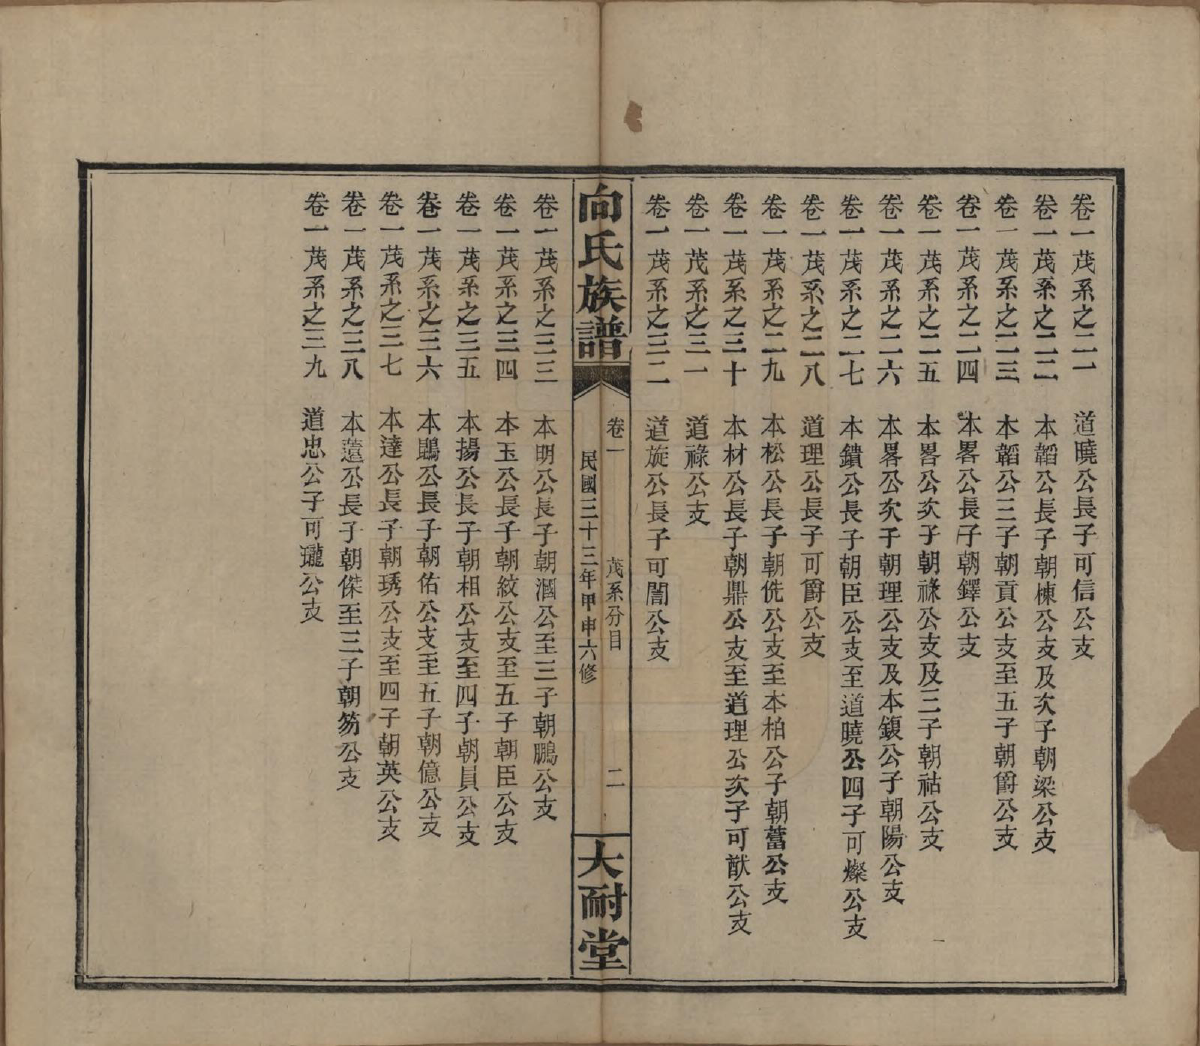 卷一茂系之二一 道曉公長子可信公支
卷一茂系之二二 本韜公長子朝棟公支及次子朝梁公支
卷一茂系之二三 本韜公三子朝貢公支至五子朝爵公支
卷一茂系之二四 本畧公長子朝鐸公支
卷一茂系之二五 本畧公次子朝祿公支及三子朝祜公支
卷一茂系之二六 本畧公次子朝理公支及本鍑公子朝陽公支
卷一茂系之二七 本鐀公長子朝臣公支至道曉公四子可燦公支
卷一茂系之二八 道理公長子可爵公支
卷一茂系之二九 本松公長子朝侁公支至本柏公子朝蓄公支
卷一茂系之三十 本材公長子朝鼎公支至道理公次子可猷公支
卷一茂系之三一 道祿公支
卷一茂系之三二 道旋公長子可闇公支
向氏族譜
卷一 茂系分目 二
民國三十三年甲申六修
大耐堂
卷一茂系之三三 本明公長子朝溷公至三子朝鵬公支
卷一茂系之三四 本玉公長子朝紋公支至五子朝臣公支
卷一茂系之三五 本揚公長子朝相公支至四子朝員公支
卷一茂系之三六 本鵰公長子朝佑公支至五子朝億公支
卷一茂系之三七 本達公長子朝琇公支至四子朝英公支
卷一茂系之三八 本薳公長子朝傑至三子朝笏公支
卷一茂系之三九 道忠公子可瓏公支